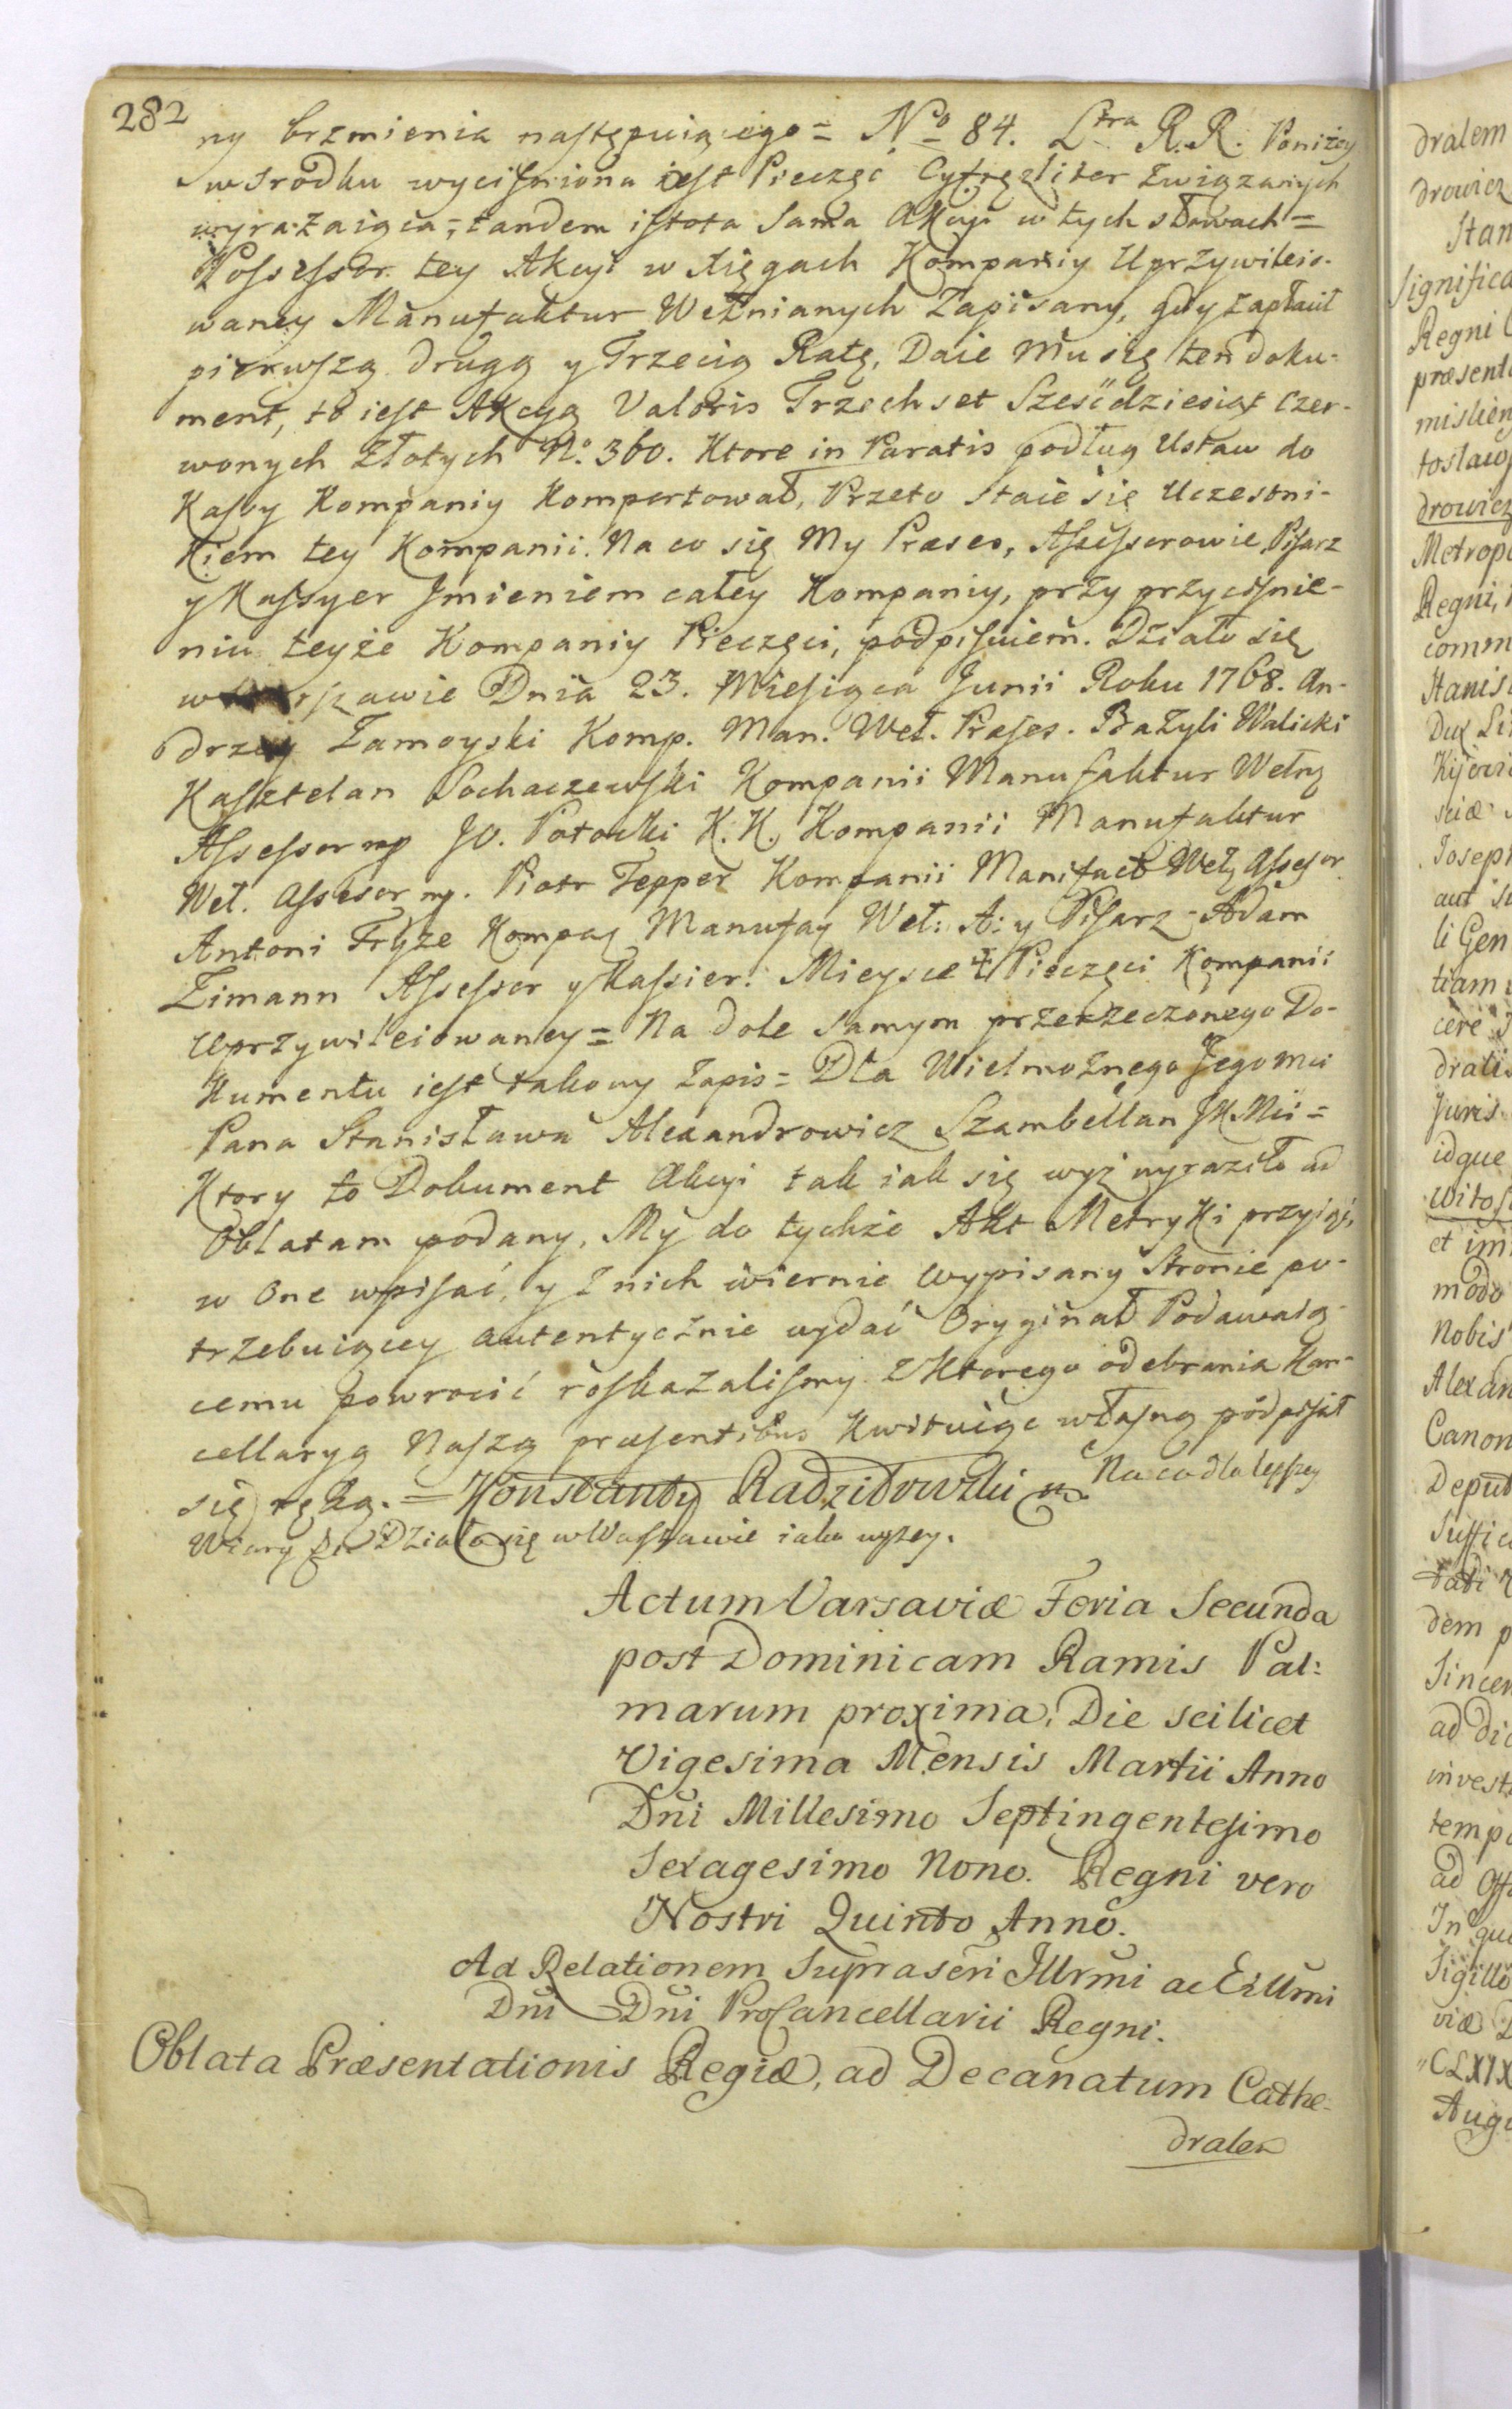 282
ny brzmienia następuiącego = No 84. Ltra R.R. Poniżey
w srodku wycisniona iest Pieczęć Cyfrę liter związanych
wyrażaiąca, tandem istota sama Akcyi w tych słowach =
Possessor tey Akcyi w Xięgach Kompaniy Uprzywileio-
waney Manufaktur Wełnianych Zapisany, gdy zapłacił
pierwszą drugą y Trzecią Ratę, Daie mu się ten doku-
ment, to iest Akcyą Valoris Trzechset Sześćdziesiąt Czer-
wonych Złotych No. 360. Ktore in Paratis podług Ustaw do
Kassy Kompaniy Komportował, Przeto staie się Uczestni-
kiem tey Kompanii. Na co się My Præses, Assessorowie, Pisarz
y Kassyer Jmieniem całey Kompaniy, przy przycisnie-
niu teyże Kompaniy Pieczęci, podpisuiem. Działo się
w rszawie Dnia 23. Miesiąca Junii Roku 1768. An-
drzey Zamoyski Komp. Man. Weł. Præses. Bazyli Walicki
Kasztelan Sochaczewski Kompanii Manufaktur Wełn
Assessor mp JO. Potocki K.K. Kompanii Manufaktur
Weł. Assesor mp. Piotr Tepper Kompanii Manifact Weł Assesor.
Antoni Fryze Kompa Manufa Weł: A: y Pisarz - Adam
Zimann Assessor y Kassier. Mieysce Pieczęci Kompanii
Uprzywileiowaney = Na dole samym przerzeczonego Do-
kumentu iest takowy Zapis = Dla Wielmożnego Jegomci
Pana Stanisława Alexandrowicz Szambellan JK Mci =
Ktory to Dokument Akcyi tak iak się wyż wyraziło ad
Oblatam podany, My do tychże Akt Metryki przyiąć,
w One wpisać, y z nich wiernie wypisany Stronie po-
trzebuiącey autentycznie wydać Oryginał Podawaią-
cemu powrocić roskazalismy z ktorego odebrania Kan-
cellaryą Naszą præsentibus Kwituiąc własną podpisał
się ręką. = Konstanty Radziłowski mp. Na co dla lepszey
Wiary Działo się w Warszawie iako wyżey.
Actum Varsaviæ Feria Secunda
post Dominicam Ramis Pal:
marum proxima, Die scilicet
Vigesima Mensis Martii Anno
Dni Millesimo Septingentesimo
Sexagesimo Nono. Regni vero
Nostri Quinto Anno.
Ad Relationem Suprascri Illrmi ac Exllmi
Dni Dni ProCancellarii Regni.
Oblata Præsentationis Regiæ, ad Decanatum Cathe-
dralem
dralem
drowicz
Stan
Significa
Regni
præsent
mislien
toslaw
drowicz
Metrop
Regni,
comm
Stanis
Dux Li
Kijovi
sciæ
Joseph
aut
li Gen
tiam
cere
drali
Juris
idque
Witos
et im
modo
Nobis
Alexan
Canon
Deput
Suffic
tati
dem p
Sincer
ad dic
invest
temp
ad Off
In qu
Sigillo
viæ
CLXIX
Augu